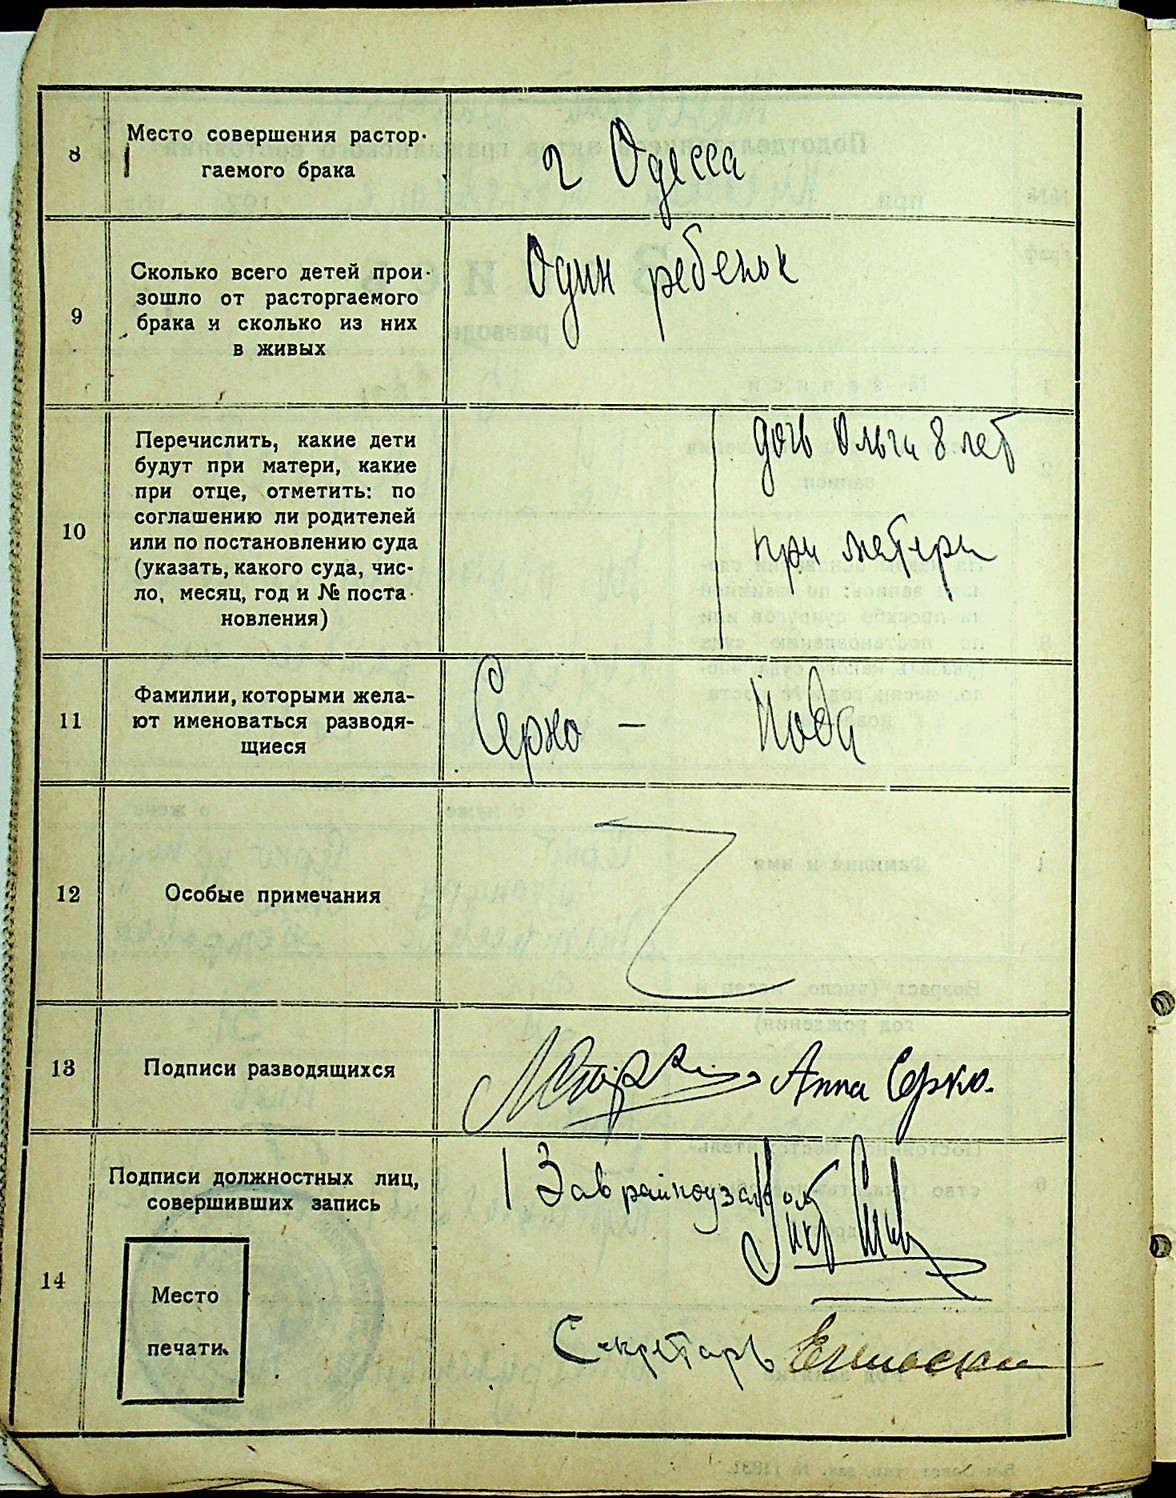 8
Место совершения растор-
гаемого брака
г Одесса
9
Сколько всего детей прои-
зошло от расторгаемого
брака и сколько из них
в живых
Один ребенок
10
Перечислить, какие дети
будут при матери, какие
при отце, отметить: по
соглашению ли родителей
или по постановлению суда
(указать, какого суда, чис-
ло, месяц, год и № поста-
новления)
дочь Ольги 8 лет
при матери
11
Фамилии, которыми жела-
ют именоваться разводя-
щиеся
Серко —
12
Особые примечания
13
Подписи разводящихся
Анна Серко.
14
Подписи должностных лиц,
совершивших запись
Зав
Место
печати
Секретарь